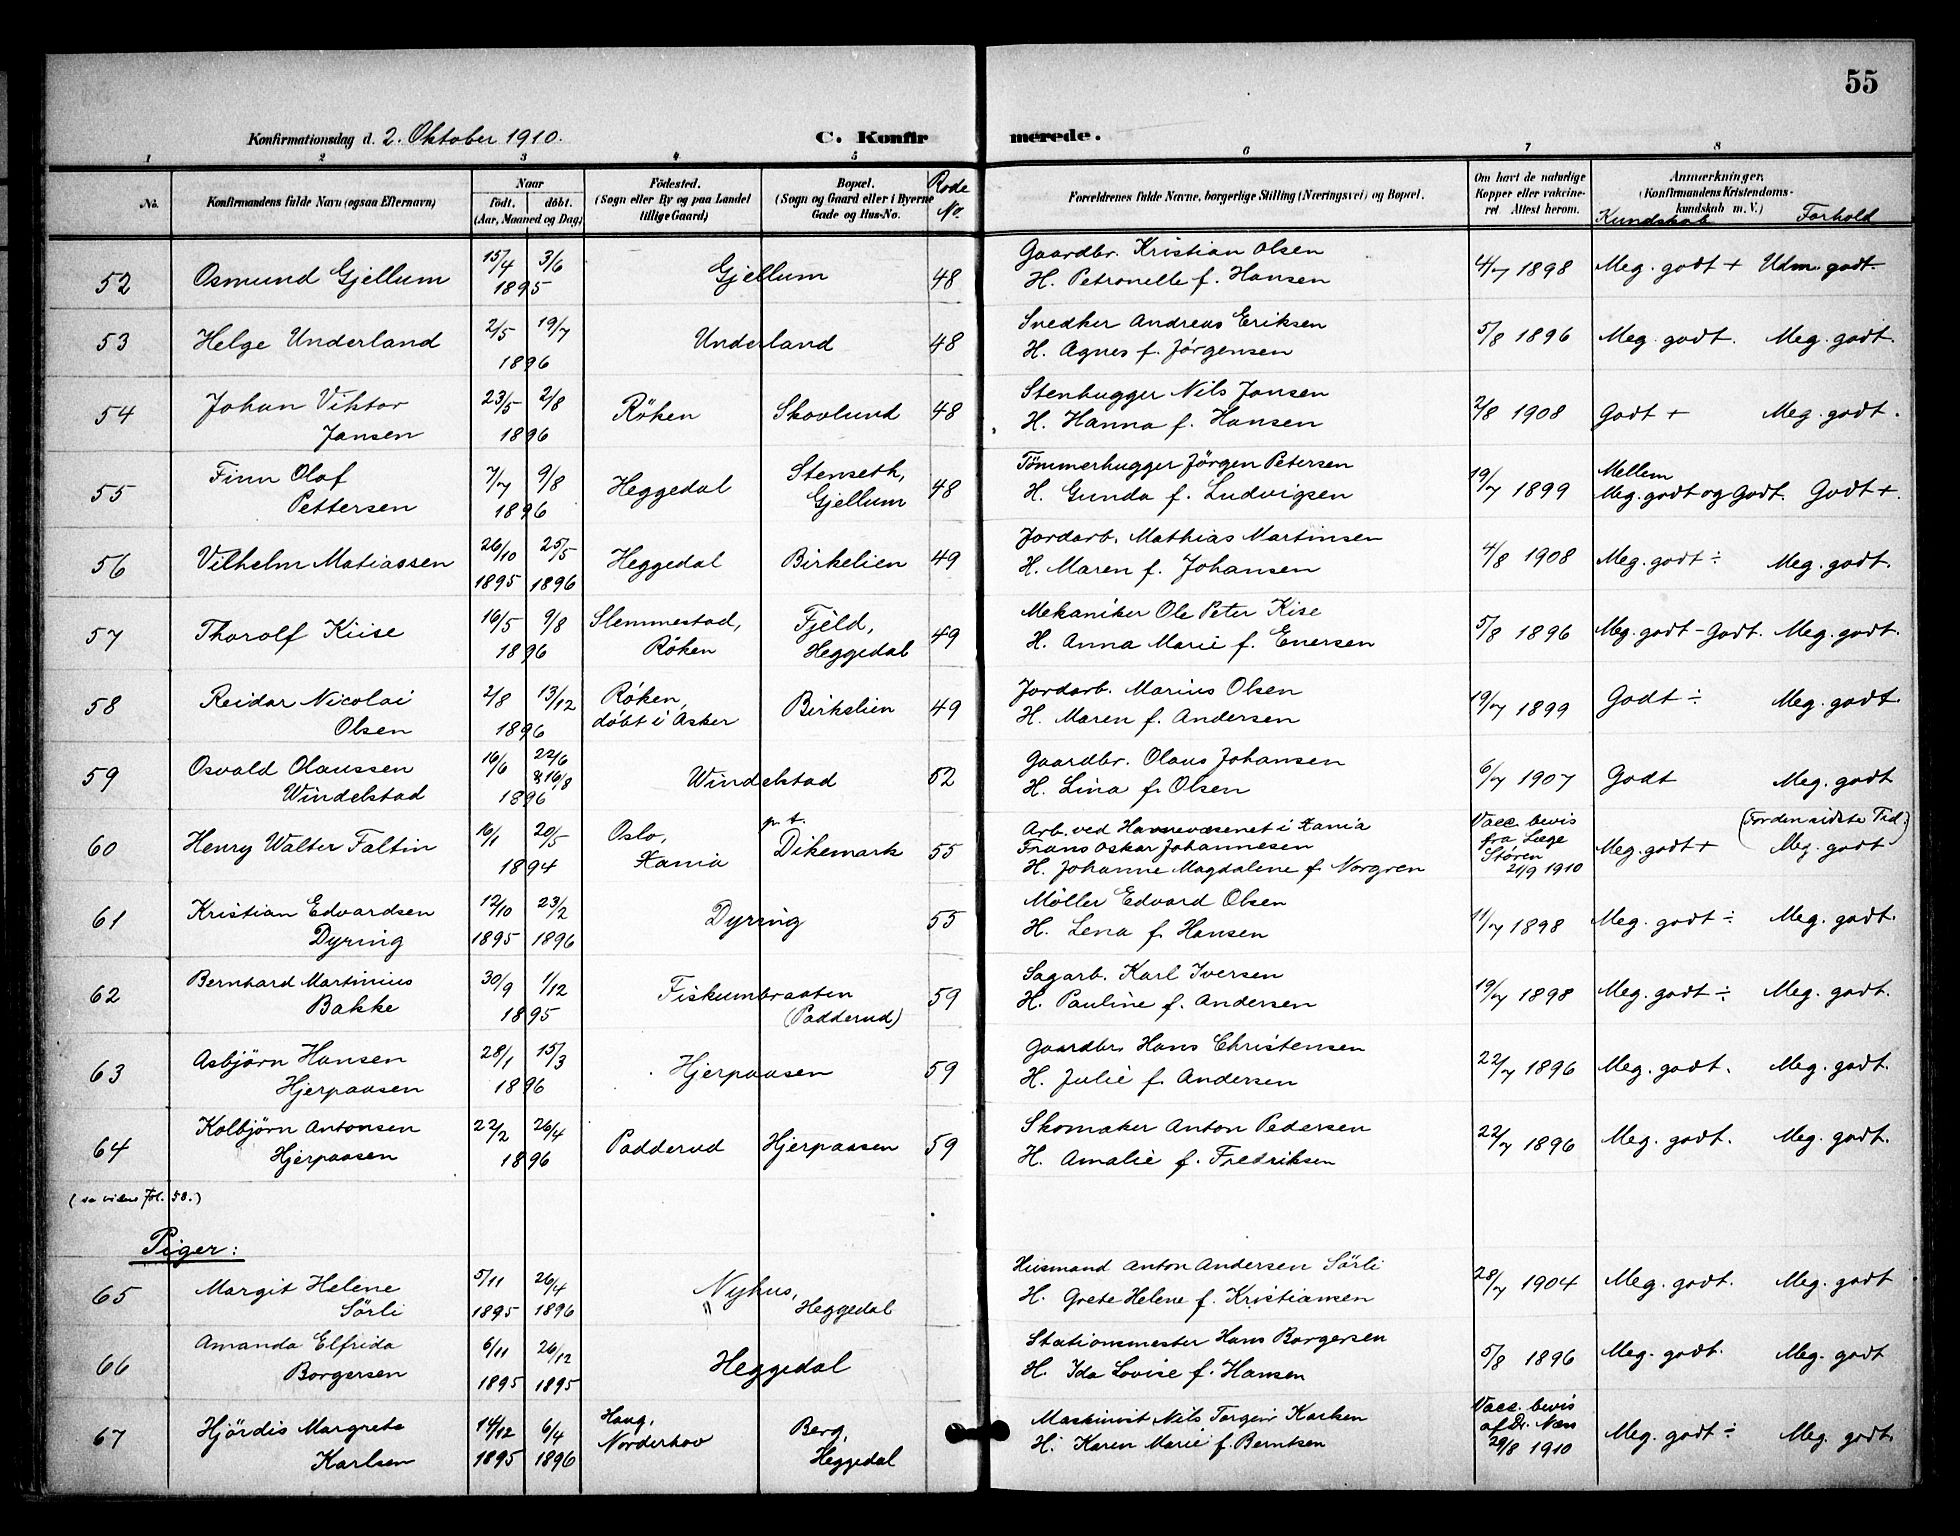 55
Konfirmationsdag d. 2. Oktober 1910. C. Konfirmerede.
1 2 3 4 5 6 7 8
No. Konfirmandens fulde Navn (ogsaa Efternavn) Naar født. døbt. (Aar, Maaned og Dag) Fødested. (Sogn eller By og paa Landet tillige Gaard) Bopæl. (Sogn og Gaard eller i Byerne Gade og Hus-No. Rode No. Forældrenes fulde Navne, borgerlige Stilling (Næringsvei) og Bopæl. Om havt de naturlige Kopper eller vakcineret Attest herom. Anmærkninger. (Konfirmandens Kristendomskundskab m. V.) Kundskab Forhold
52 Osmund Gjellum 15/4 3/6 1895 Gjellum 48 Gaardbr. Kristian Olsen
H. Petronelle f. Hansen 4/7 1898 Meg. godt + Udm. godt.
53 Helge Underland 2/5 19/7 1896 Underland 48 Snedker Andreas Eriksen
H. Agnes f. Jørgensen 5/8 1896 Meg. godt. Meg. godt.
54 Johan Viktor
Jansen 23/5 2/8 1896 Röken Skovlund 48 Stenhugger Nils Jansen
H. Hanna f. Hansen 2/8 1908 Godt + Meg. godt.
55 Finn Olaf
Pettersen 7/7 9/8 1896 Heggedal Stenseth,
Gjellum 48 Tømmerhugger Jörgen Petersen
H. Gunda f. Ludvigsen 19/7 1899 Mellem
Meg. godt og Godt. Godt +.
56 Vilhelm Matiassen 26/10 1895 25/5 1896 Heggedal Birkelien 49 Jordarb. Mathias Martinsen
H. Maren f. Johansen 4/8 1908 Meg. godt ÷ Meg. godt.
57 Thorolf Kiise 16/5 9/8 1896 Slemmestad,
Röken Fjeld,
Heggedal 49 Mekaniker Ole Peter Kise
H. Anna Marie f. Enersen 5/8 1896 Meg. godt - Godt. Meg. godt.
58 Reidar Nicolai
Olsen 2/8 13/12 1896 Röken,
döbt i Asker Birkelien 49 Jordarb. Marius Olsen
H. Maren f. Andersen 19/7 1899 Godt ÷ Meg. godt.
59 Osvald Olaussen
Windelstad 16/6 22/6 & 16/8 1896 Windelstad 52 Gaardbr. Olaus Johansen
H. Lina f. Olsen 6/7 1907 Godt Meg. godt
60 Henry Walter Faltin 16/1 20/5 1894 Oslo,
Xania p. t.
Dikemark 55 Arb. ved Havnevæsenet i Xania
Frans Oskar Johannesen
H. Johanne Magdalene f. Norgren Vacc. bevis
fra Læge
Støren
21/9 1910 Meg. godt + (For den sidste Tid:
Meg. godt)
61 Kristian Edvardsen
Dyring 12/10 1895 23/2 1896 Dyring 55 Möller Edvard Olsen
H. Lena f. Hansen 11/7 1898 Meg. godt ÷ Meg. godt.
62 Bernhard Martinius
Bakke 30/9 1/12 1895 Fiskumbraaten
(Padderud) 59 Sagarb. Karl Iversen
H. Pauline f. Andersen 19/7 1898 Meg. godt ÷ Meg. godt.
63 Asbjörn Hansen
Hjerpaasen 28/1 15/3 1896 Hjerpaasen 59 Gaardbr. Hans Christensen
H. Julie f. Andersen 22/7 1896 Meg. godt. Meg. godt.
64 Kolbjörn Antonsen
Hjerpaasen 22/2 26/4 1896 Padderud Hjerpaasen 59 Skomaker Anton Pedersen
H. Amalie f. Fredriksen 22/7 1896 Meg. godt. Meg. godt.
Fol. 58.)
Piger:
65 Margit Helene
Sörli 5/11 1895 26/4 1896 Nyhus,
" Heggedal Husmand Anton Andersen Sörli
H. Grete Helene f. Kristiansen 28/7 1904 Meg. godt. Meg. godt
66 Amanda Elfrida
Borgersen 6/11 1895 26/12 1895 Heggedal Stationsmester Hans Borgersen
H. Ida Lovise f. Hansen 5/8 1896 Meg. godt. Meg. godt
67 Hjördis Margrete
Karlsen 14/12 1895 6/4 1896 Haug,
Norderhov Berg,
Heggedal Maskinist Nils Torgeir Karlsen
H. Karen Marie f. Berntsen Vacc. bevis
af Dr. Næss
29/8 1910 Meg. godt ÷ Meg. godt.